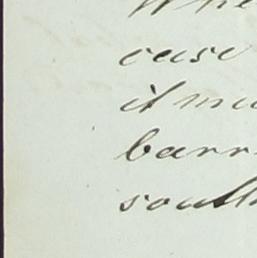 Whe
case
it mu
barr
south